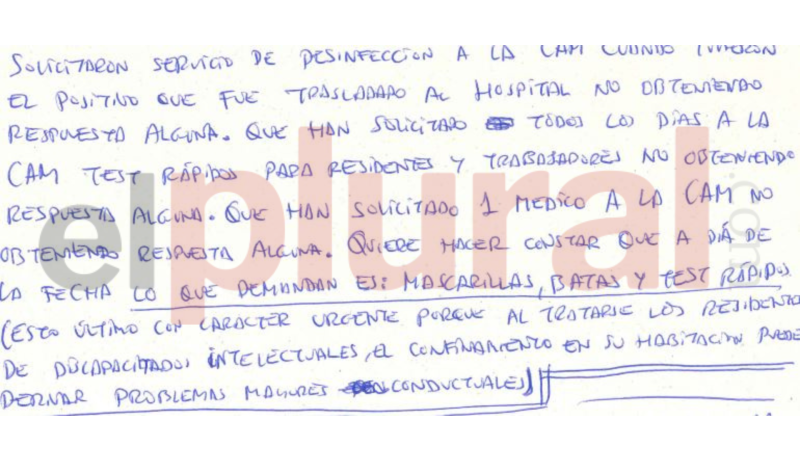 SOLICITARON SERVICIO DE DESINFECCION A LA CAM CUANDO TUVIERON
EL POSITIVO QUE FUE TRASLADADO AL HOSPITAL NO OBTENIENDO
RESPUESTA ALGUNA. QUE HAN SOLICITADO TODOS LOS DÍAS A LA
CAM TEST RÁPIDOS PARA RESIDENTES Y TRABAJADORES NO OBTENIENDO
RESPUESTA ALGUNA. QUE HAN SOLICITADO 1 MEDICO A LA CAM NO
OBTENIENDO RESPUESTA ALGUNA. QUIERE HACER CONSTAR QUE A DÍA DE
LA FECHA LO QUE DEMANDAN ES: MASCARILLAS, BATAS Y TEST RÁPIDOS
(ESTO ÚLTIMO CON CARACTER URGENTE PORQUE AL TRATARSE LOS RESIDENTES
DE DISCAPACITADOS INTELECTUALES, EL CONFINAMIENTO EN SU HABITACION PUEDE
DERIVAR PROBLEMAS MAYORES CONDUCTUALES)
elplural.com